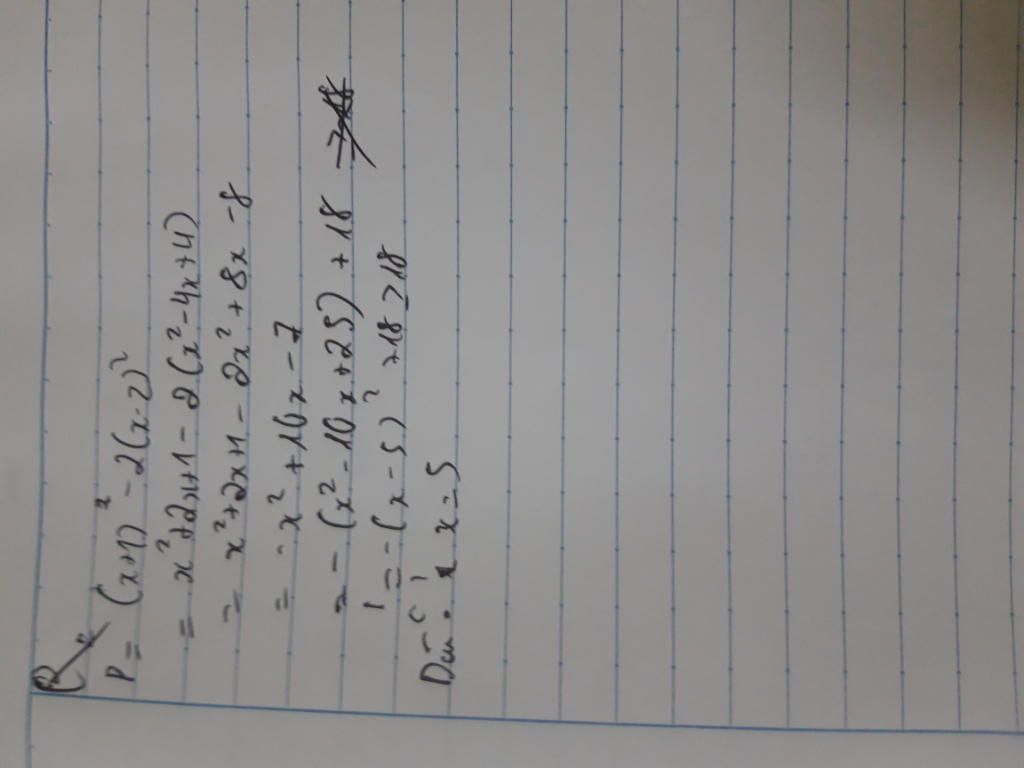 P = (x+1)² - 2(x-2)²
= x²+2x+1 - 2(x²-4x+4)
= x²+2x+1 - 2x²+8x-8
= -x²+10x-7
= -(x²-10x+25)+18
= -(x-5)²+18 ≥ 18
x=5